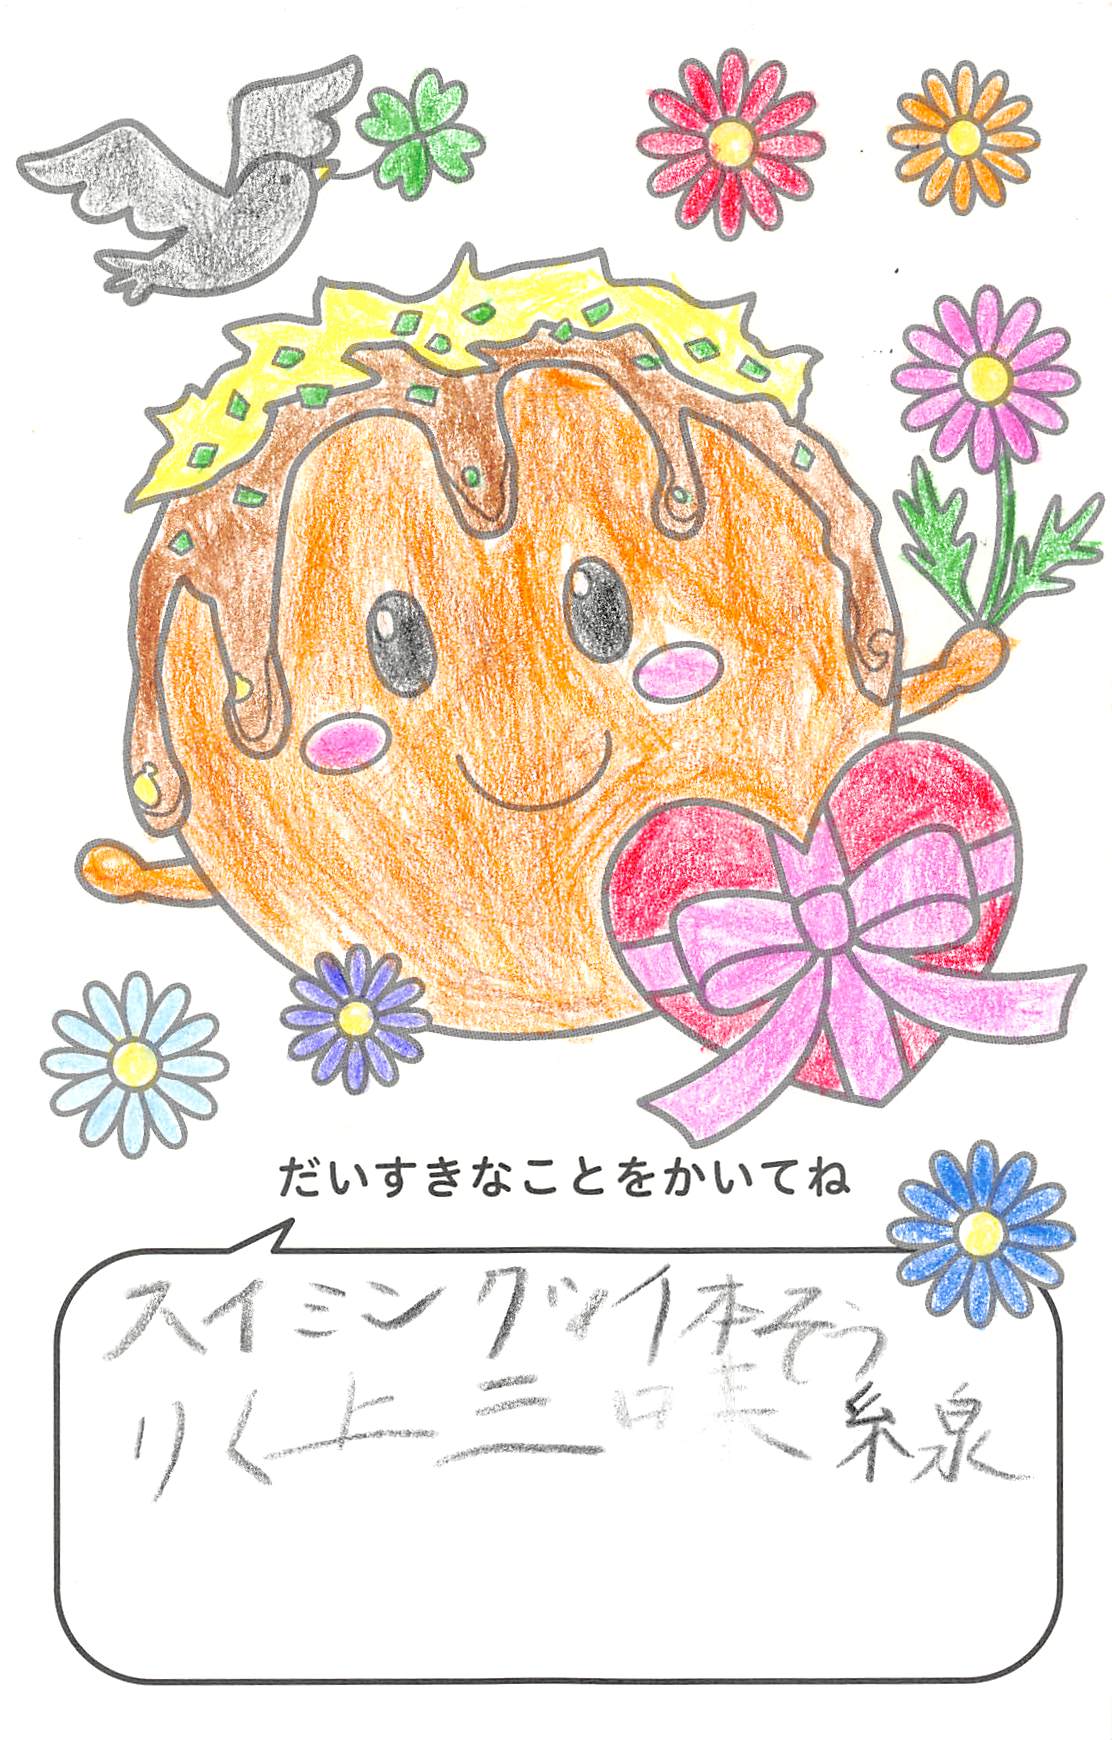 だいすきなことをかいてね
スイミングツイ本そう
りく上三口未糸泉